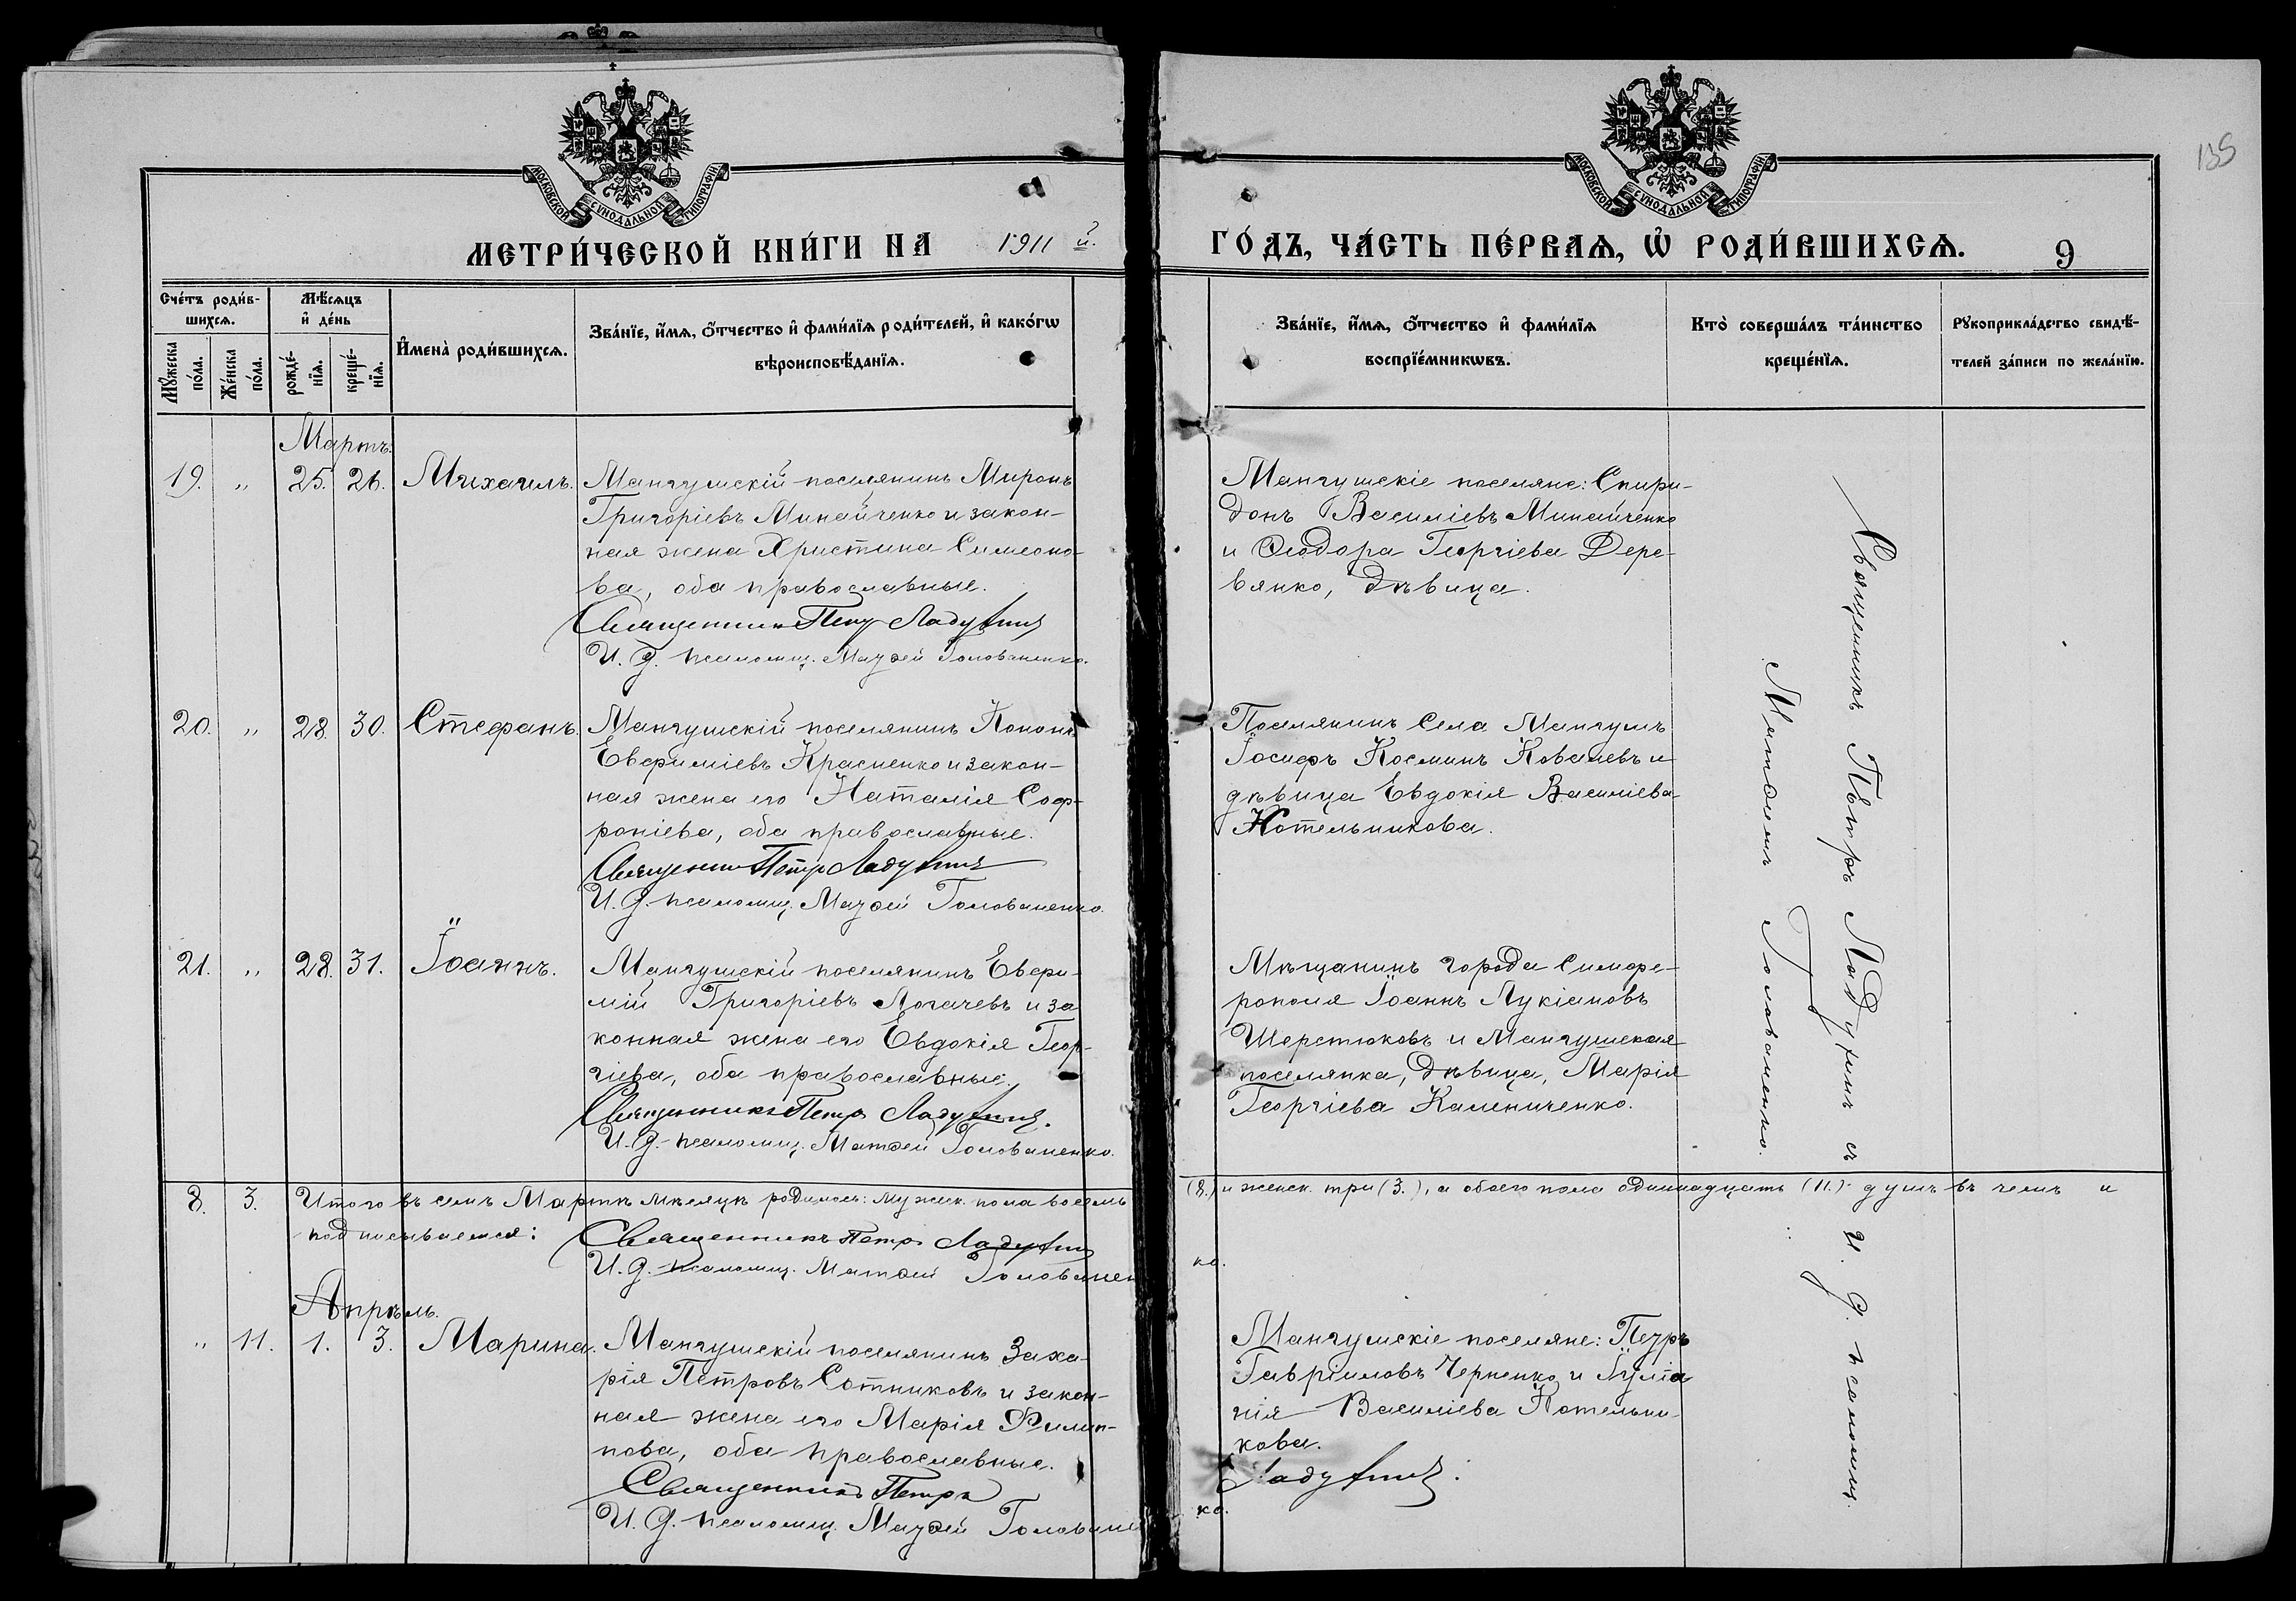 МОСКОВСКОЙ СѴНОДАЛЬНОЙ ТИПОГРАФІИ
МОСКОВСКОЙ СѴНОДАЛЬНОЙ ТИПОГРАФІИ
135
МЕТРИ́ЧЕСКОЙ КНИ́ГИ НА 1911 й.
ГО́ДЪ, ЧА́СТЬ ПЕ́РВАѦ, Ѡ҆ РОДИ́ВШИХСѦ.
9
Сче́тъ роди́в-
шихсѧ.
Мѣ́сѧцъ
и҆ де́нь
Мꙋ́жеска
по́ла.
Же́нска
по́ла.
рожде́-
нїѧ.
креще́-
нїѧ.
И҆мена̀ роди́вшихсѧ.
Зва́нїе, и҆́мѧ, ѻ҆́тчество и҆ фами́лїѧ роди́телей, и҆ како́гѡ
вѣроисповѣ́данїѧ.
Зва́нїе, и҆́мѧ, ѻ҆́тчество и҆ фами́лїѧ
воспрїе́мникѡвъ.
Кто̀ соверша́лъ та́инство
креще́нїѧ.
Рꙋкоприкла́дство свидѣ́-
телей за́писи по жела́нїю.
Мартъ.
19. „ 25. 26. Михаилъ.
Мангушскій поселянинъ Миронъ
Григоріевъ Минайченко и закон-
ная жена Христина Симеоно-
ва, оба православные.
Священникъ Петръ Ладухинъ
И. д. псаломщ. Матѳей Голованенко.
Мангушскіе поселяне: Спири-
донъ Василіевъ Минайченко
и Ѳеодора Георгіева Дере-
вянко, дѣвица.
20. „ 28. 30. Стефанъ.
Мангушскій поселянинъ Кононъ
Евфиміевъ Красненко и закон-
ная жена его Наталія Соф-
роніева, оба православные.
Священникъ Петръ Ладухинъ
И. д. псаломщ. Матѳей Голованенко.
Поселянинъ села Мангушъ
Іосифъ Косминъ Ковалевъ и
дѣвица Евдокія Василіева
Котельникова.
21. „ 28. 31. Іоаннъ.
Мангушскій поселянинъ Евфи-
мій Григоріевъ Логачевъ и за
конная жена его Евдокія Геор-
гіева, оба православные.
Священникъ Петръ Ладухинъ.
И. д. псаломщ. Матѳей Голованенко.
Мѣщанинъ города Симфе-
рополя Іоаннъ Лукіановъ
Шерстюковъ и Мангушская
поселянка, дѣвица, Марія
Георгіева Калениченко.
8. 3. Итого въ семъ Мартѣ мѣсяцѣ родилось: мужск. пола восемь (8.) и женск. три (3.), а обоего пола одиннадцать (11.) душъ въ чемъ и
подписываемся: Священникъ Петръ Ладухинъ
И. д. псаломщ. Матѳей Голованенко.
Апрѣль.
„ 11. 1. 3. Марина.
Мангушскій поселянинъ Заха-
рія Петровъ Сотниковъ и закон-
ная жена его Марія Филип-
пова, оба православные.
Священникъ Петръ Ладухинъ.
И. д. псаломщ. Матѳей Голованенко.
Мангушскіе поселяне: Петръ
Гавріиловъ Черненко и Іуліа
нія Василіева Котельни-
кова.
Священникъ Петръ Ладухинъ съ И. д. псаломщ.
Матѳеемъ Голованенко.